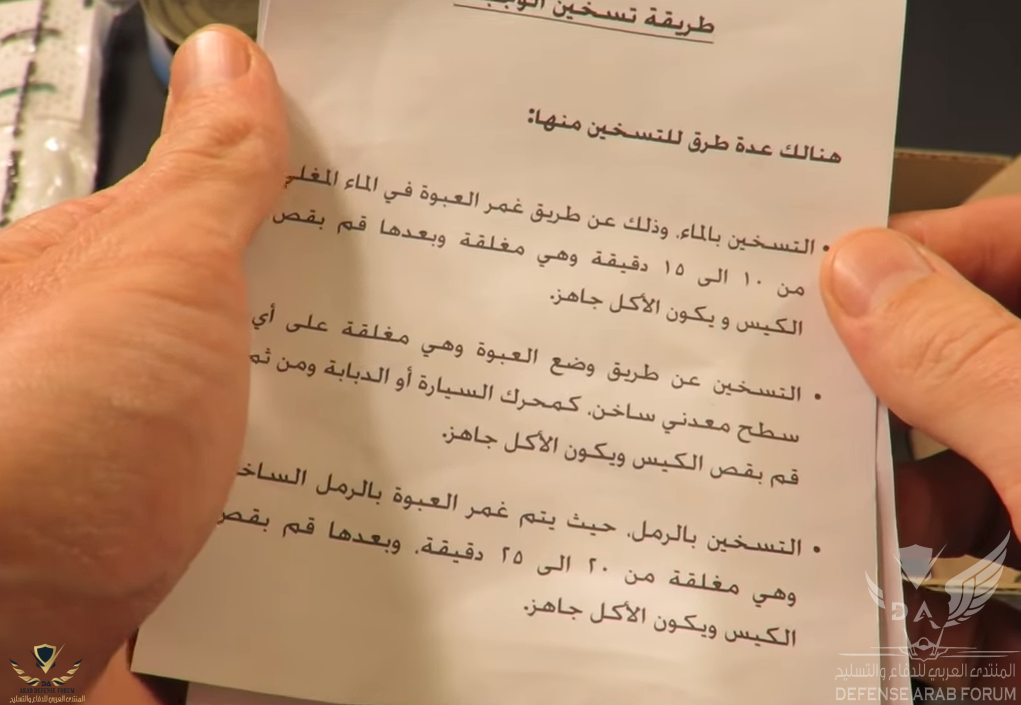 طريقة تسخين
هنالك عدة طرق للتسخين منها:
• التسخين بالماء، وذلك عن طريق غمر العبوة في الماء المغلي
من ١٠ الى ١٥ دقيقة وهي مغلقة وبعدها قم بقص
الكيس و يكون الأكل جاهز.
• التسخين عن طريق وضع العبوة وهي مغلقة على أي
سطح معدني ساخن، كمحرك السيارة أو الدبابة ومن ثم
قم بقص الكيس ويكون الأكل جاهز.
• التسخين بالرمل، حيث يتم غمر العبوة بالرمل
وهي مغلقة من ٢٠ الى ٢٥ دقيقة، وبعدها قم بقص
الكيس ويكون الأكل جاهز.
DA
المنتدى العربي للدفاع والتسليح
DEFENSE ARAB FORUM
DA
ARAB DEFENSE FORUM
المنتدى العربي للدفاع والتسليح